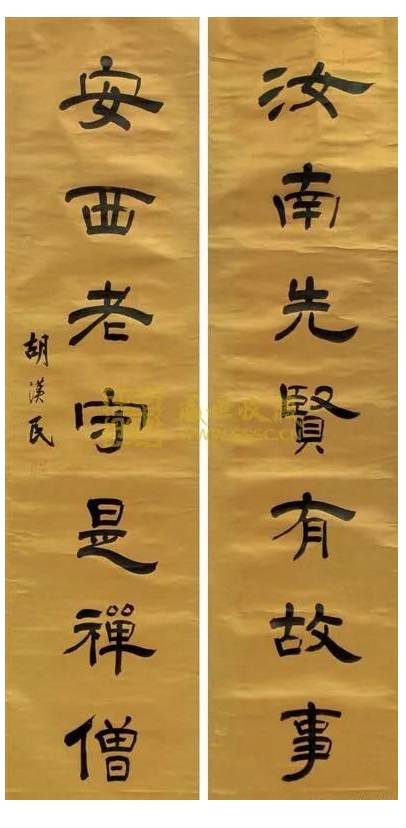 汝南先賢有故事
安西老守是禪僧
胡漢民